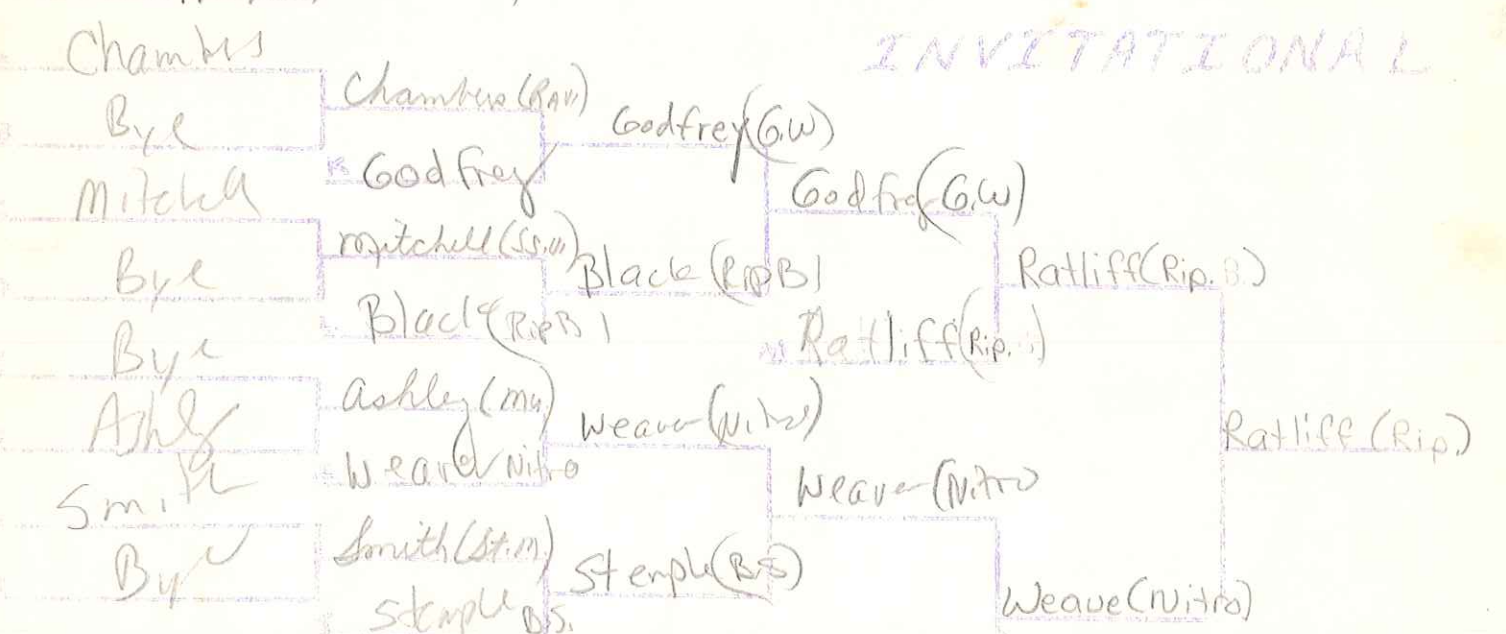 INVITATIONAL
Chambers
Bye
Mitchell
Bye
Bye
Ashley
Smith
Bye
Chambers (Rav)
Godfrey
Mitchell (SS.M)
Black (Rip B)
Ashley (Mu)
Weaver Nitro
Smith (St.M.)
Stemple B.S.
Godfrey (G.W)
Black (Rip B)
Weaver (Nitro)
Stemple (B.S)
Godfrey (G.W)
Ratliff (Rip. B.)
Weaver (Nitro
Ratliff (Rip. B.)
Weave (Nitro)
Ratliff (Rip.)